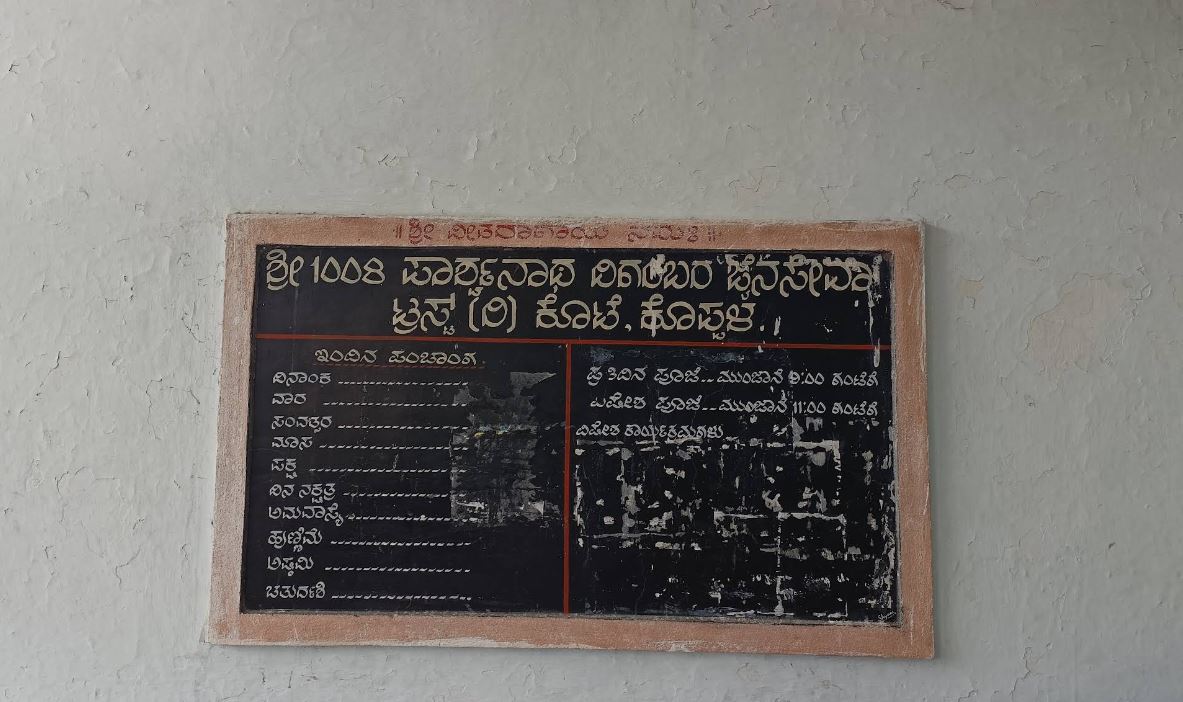 ॥ ಶ್ರೀ ವೀತರಾಗಾಯ ನಮಃ ॥
ಶ್ರೀ 1008 ಪಾರ್ಶ್ವನಾಥ ದಿಗಂಬರ ಜೈನಸೇವಾ
ಟ್ರಸ್ಟ್ (ರಿ) ಕೋಟೆ, ಕೊಪ್ಪಳ.
ಇಂದಿನ ಪಂಚಾಂಗ
ದಿನಾಂಕ
ವಾರ
ಸಂವತ್ಸರ
ಮಾಸ
ಪಕ್ಷ
ದಿನ ನಕ್ಷತ್ರ
ಅಮವಾಸ್ಯೆ
ಹುಣ್ಣಿಮೆ
ಅಷ್ಠಮಿ
ಚತುರ್ದಶಿ
ಪ್ರತಿದಿನ ಪೂಜೆ.. ಮುಂಜಾನೆ 9:00 ಗಂಟೆಗೆ
ವಿಶೇಶ ಪೂಜೆ.. ಮುಂಜಾನೆ 11:00 ಗಂಟೆಗೆ
ವಿಶೇಶ ಕಾರ್ಯಕ್ರಮಗಳು